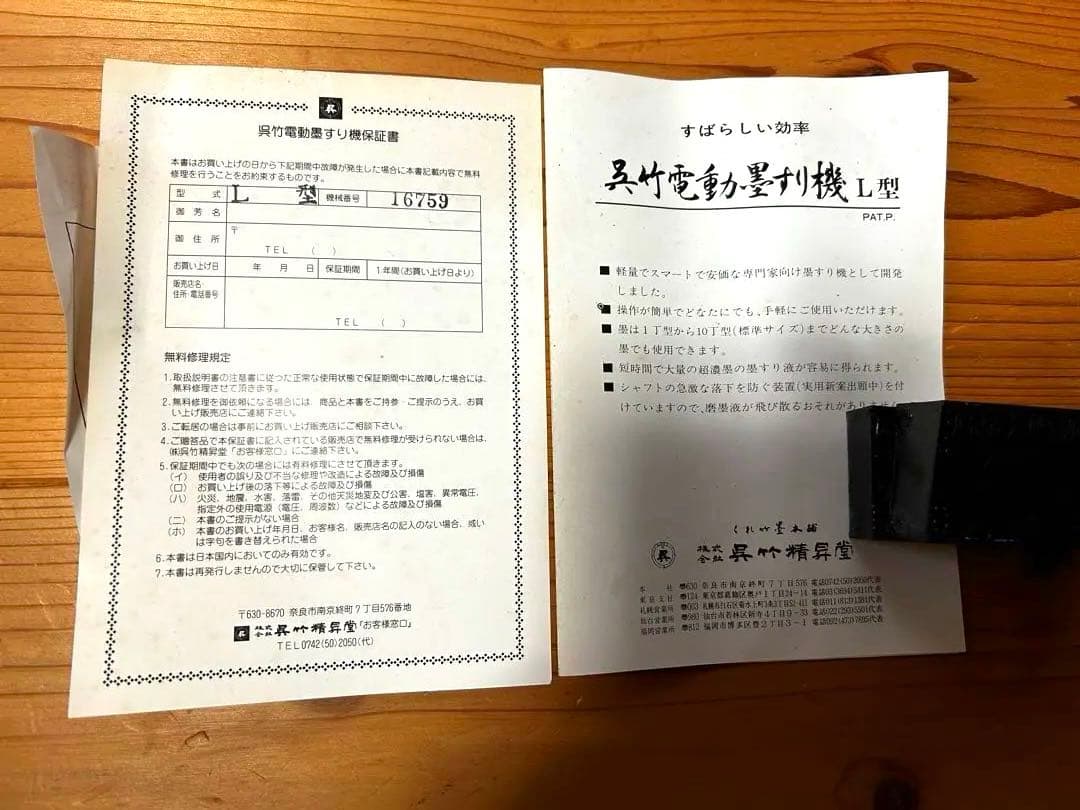 呉
呉竹電動墨すり機保証書
本書はお買い上げの日から下記期間中故障が発生した場合に本書記載内容で無料
修理を行うことをお約束するものです。
型式 L型 機械番号 16759
御芳名
御住所 〒
TEL ( )
お買い上げ日 年 月 日 保証期間 1年間(お買い上げ日より)
販売店名・
住所・電話番号
TEL ( )
無料修理規定
1.取扱説明書の注意書に従つた正常な使用状態で保証期間中に故障した場合には、
無料修理させて頂きます。
2.無料修理を御依頼になる場合には、商品と本書をご持参・ご提示のうえ、お買
い上げ販売店にご連絡下さい。
3.ご転居の場合は事前にお買い上げ販売店にご相談下さい。
4.ご贈答品で本保証書に記入されている販売店で無料修理が受けられない場合は、
㈱呉竹精昇堂「お客様窓口」にご連絡下さい。
5.保証期間中でも次の場合には有料修理にさせて頂きます。
(イ) 使用者の誤り及び不当な修理や改造による故障及び損傷
(ロ) お買い上げ後の落下等による故障及び損傷
(ハ) 火災、地震、水害、落雷、その他天災地変及び公害、塩害、異常電圧、
指定外の使用電源(電圧、周波数)などによる故障及び損傷
(ニ) 本書のご提示がない場合
(ホ) 本書のお買い上げ年月日、お客様名、販売店名の記入のない場合、或い
は字句を書き替えられた場合
6.本書は日本国内においてのみ有効です。
7.本書は再発行しませんので大切に保管して下さい。
〒630-8670 奈良市南京終町7丁目576番地
呉 株式会社 呉竹精昇堂「お客様窓口」
TEL0742(50)2050(代)
すばらしい効率
呉竹電動墨すり機L型
PAT.P.
■ 軽量でスマートで安価な専門家向け墨すり機として開発
しました。
■ 操作が簡単でどなたにでも、手軽にご使用いただけます。
■ 墨は1丁型から10丁型(標準サイズ)までどんな大きさの
墨でも使用できます。
■ 短時間で大量の超濃墨の墨すり液が容易に得られます。
■ シャフトの急激な落下を防ぐ装置(実用新案出願中)を付
けていますので、磨墨液が飛び散るおそれがありません
くれ竹墨本舗
呉 株式会社 呉竹精昇堂
本社 〒630 奈良市南京終町7丁目576 電話0742(50)2050代表
東京支社 〒124 東京都葛飾区奥戸1丁目24-14 電話03(3694)5411代表
札幌営業所 〒003 札幌市白石区菊水上町3条3丁目52-411 電話011(831)1281代表
仙台営業所 〒980 仙台市若林区新寺4丁目9-33 電話022(293)5501代表
福岡営業所 〒812 福岡市博多区豊2丁目3-1 電話092(473)7895代表